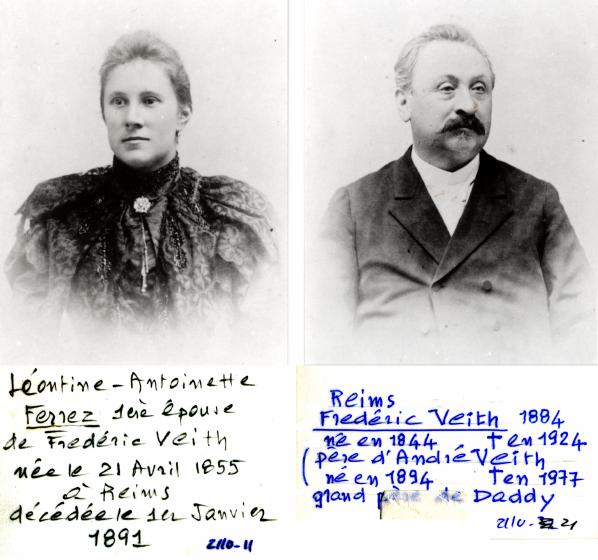 Léontine-Antoinette
Ferrez 1ère épouse
de Frédéric Veith
née le 21 Avril 1855
à Reims
décédée le 1er Janvier
1891
2110-11
Reims
Frédéric Veith 1884
né en 1844 † en 1924
(père d'André Veith
né en 1894 † en 1977
grand père de Daddy
2110- 21